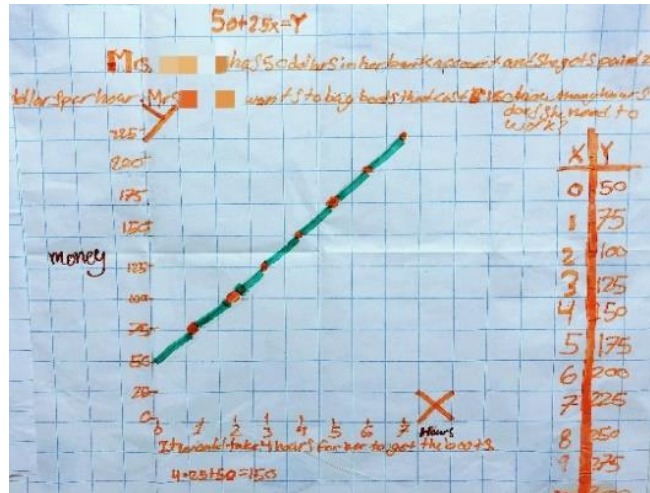 50+25x=Y
Mrs. has 50 dollars in her bank account and she gets paid 2
dollars per hour. Mrs wants to buy boots that cost 150 how many hours
does she need to
work?
Y
225
200
175
150
125
100
75
50
25
0
money
0 1 2 3 4 5 6 7
X
Hours
It would take 4 hours for her to get the boots.
4•25+50=150
X Y
0 50
1 75
2 100
3 125
4 150
5 175
6 200
7 225
8 250
9 275